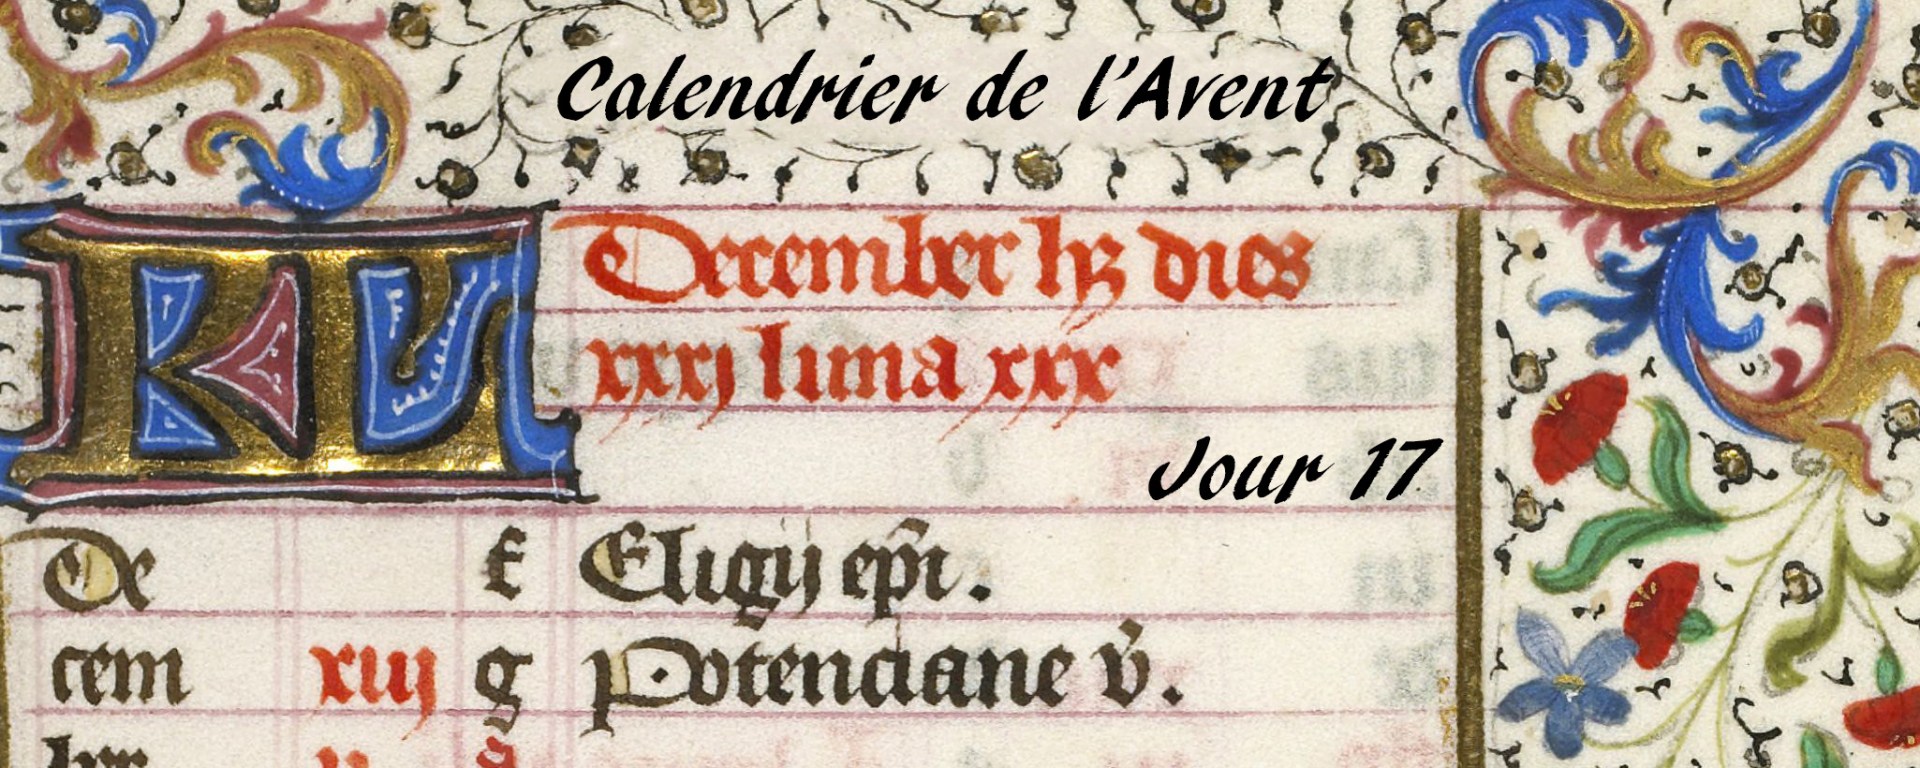 Calendrier de l'Avent
KL December hz dies
xxxj luna xxx
Jour 17
De f Eligij epi.
cem xiij g Potenciane v.